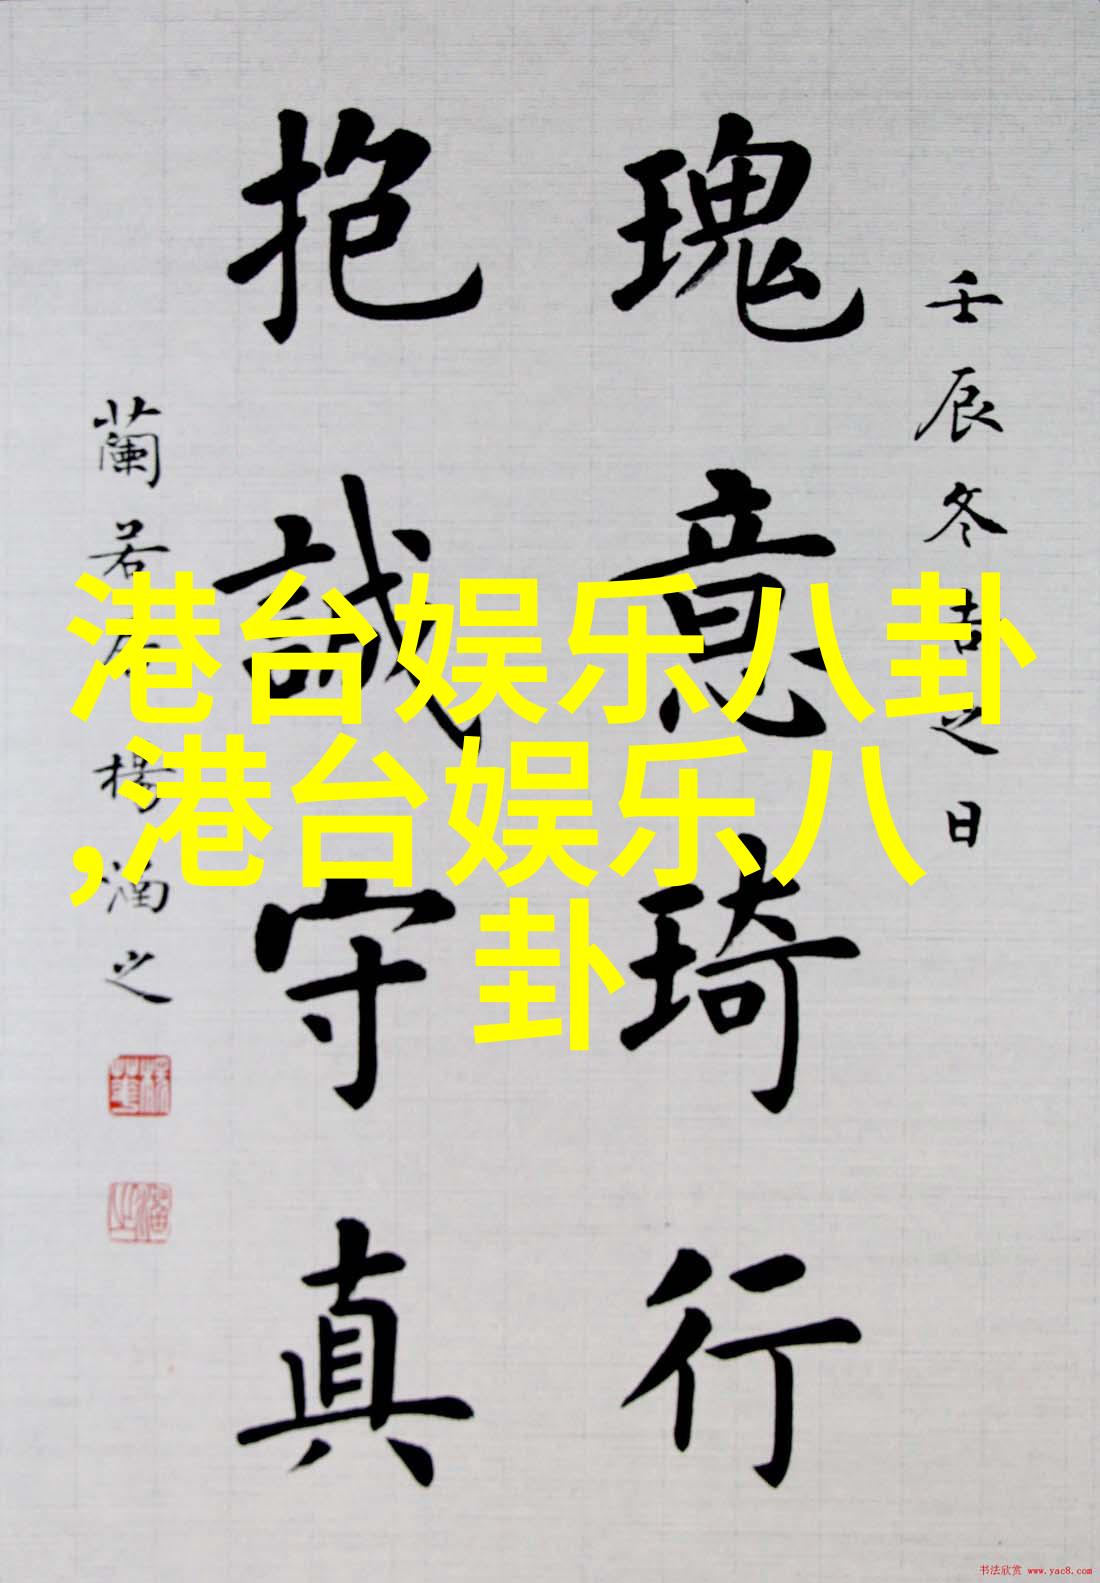 壬辰冬吉之日
瑰意琦行
抱誠守真
蘭若
楊涵之
港台娱乐八卦
,港台娱乐八
卦
书法欣赏 www.yac8.com